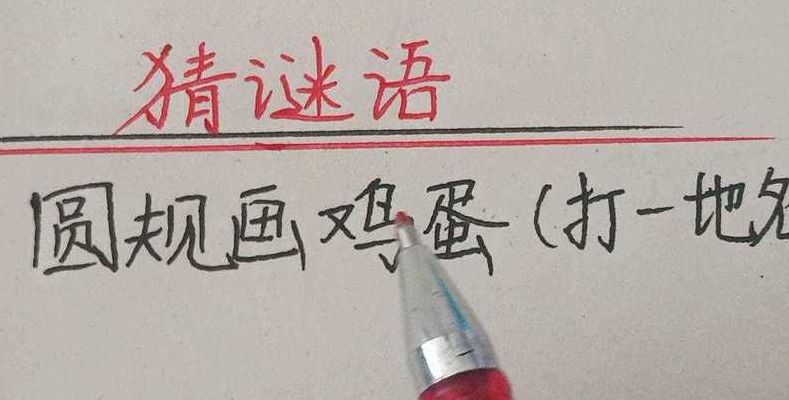 猜谜语
圆规画鸡蛋(打一地名